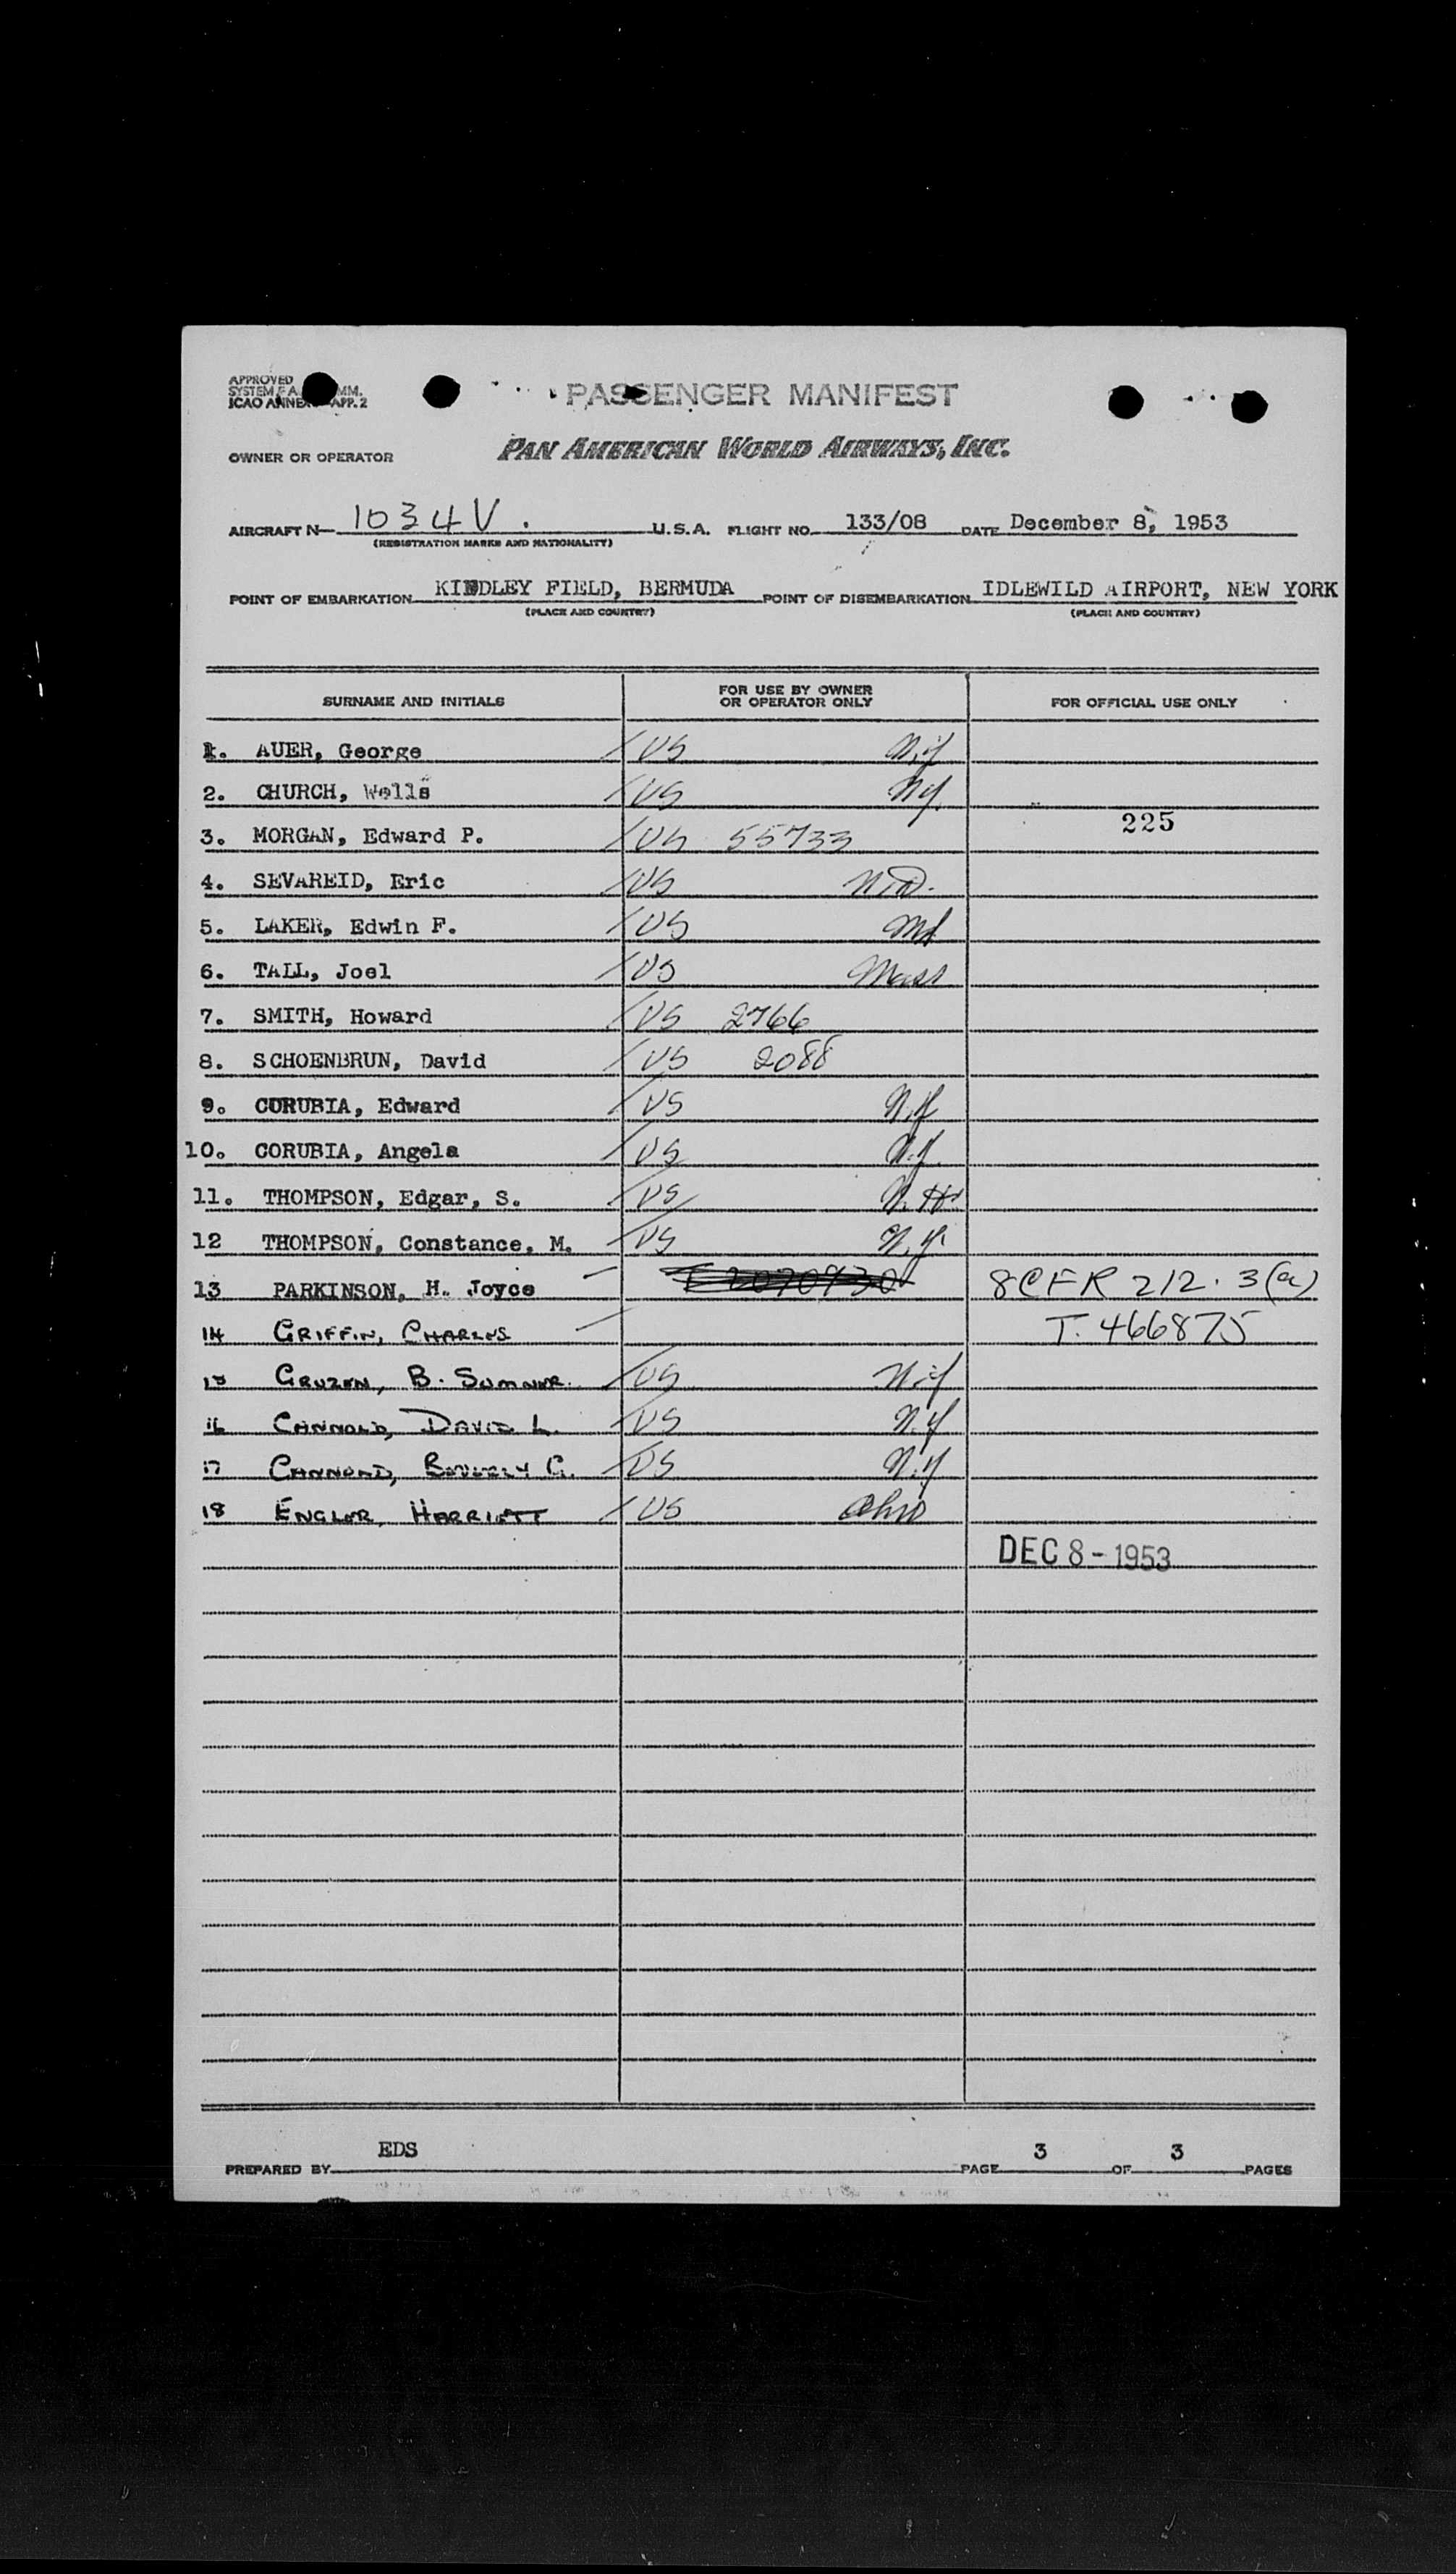 APPROVED
SYSTEM F.A. MM.
ICAO ANNEX APP. 2
PASSENGER MANIFEST
OWNER OR OPERATOR PAN AMERICAN WORLD AIRWAYS, INC.
AIRCRAFT N 1034V. U.S.A. FLIGHT NO. 133/08 DATE December 8, 1953
(REGISTRATION MARKS AND NATIONALITY)
POINT OF EMBARKATION KINDLEY FIELD, BERMUDA POINT OF DISEMBARKATION IDLEWILD AIRPORT, NEW YORK
(PLACE AND COUNTRY) (PLACE AND COUNTRY)
SURNAME AND INITIALS FOR USE BY OWNER OR OPERATOR ONLY FOR OFFICIAL USE ONLY
1. AUER, George / US N.Y
2. CHURCH, Wells / US N.Y.
225
3. MORGAN, Edward P. / US 55733
4. SEVAREID, Eric / US N.D.
5. LAKER, Edwin F. / US Md
6. TALL, Joel / US Mass
7. SMITH, Howard / US 2766
8. SCHOENBRUN, David / US 2088
9. CORUBIA, Edward / US N.Y
10. CORUBIA, Angela / US N.Y.
11. THOMPSON, Edgar, S. / US N.H.
12 THOMPSON, Constance, M. / US N.Y.
13 PARKINSON, H. Joyce 8CFR 212.3(a)
14 GRIFFIN, CHARLES T. 466875
15 GRUZEN, B. SUMNER. / US N.Y
16 CANNOLD, DAVID L. / US N.Y
17 CANNOLD, BEVERLY G. / US N.Y
18 ENGLER, HARRIETT / US Ohio
DEC 8 - 1953
PREPARED BY EDS PAGE 3 OF 3 PAGES